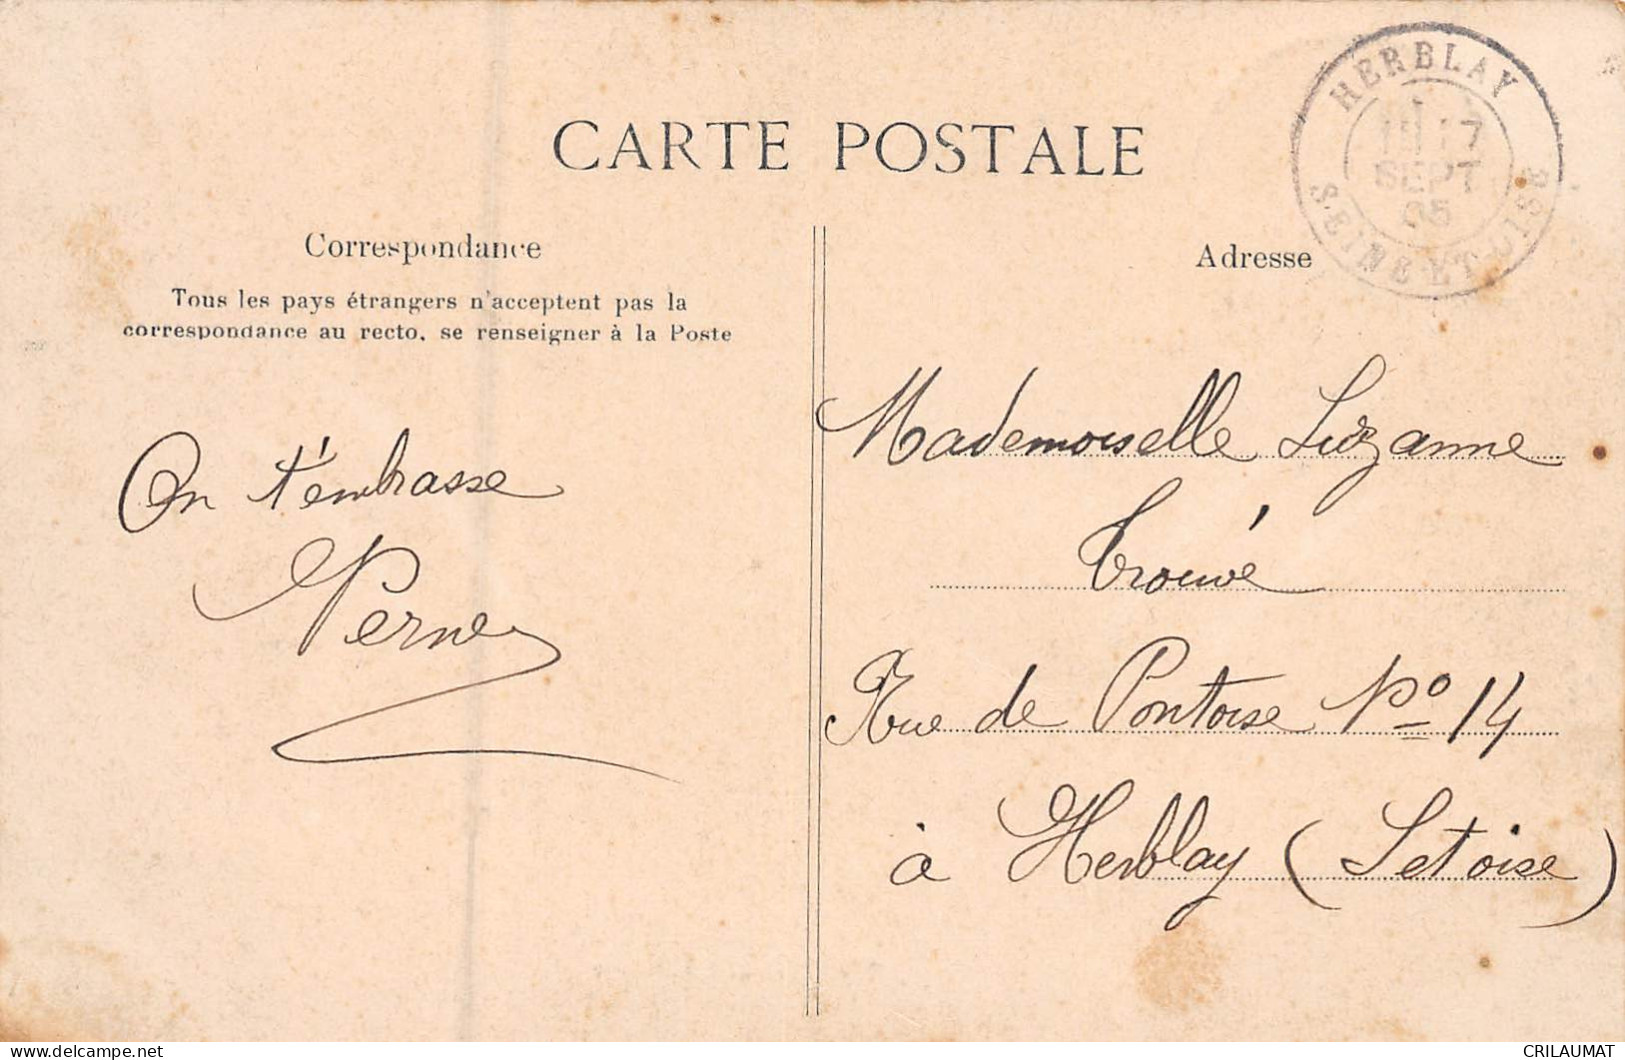 CARTE POSTALE
HERBLAY
17
SEPT
05
SEINE ET OISE
Correspondance
Tous les pays étrangers n'acceptent pas la
correspondance au recto, se renseigner à la Poste
On t'embrasse
Adresse
Mademoiselle Suzanne
Trouvé
Rue de Pontoise No 14
à Herblay (S et Oise)
CRILAUMAT